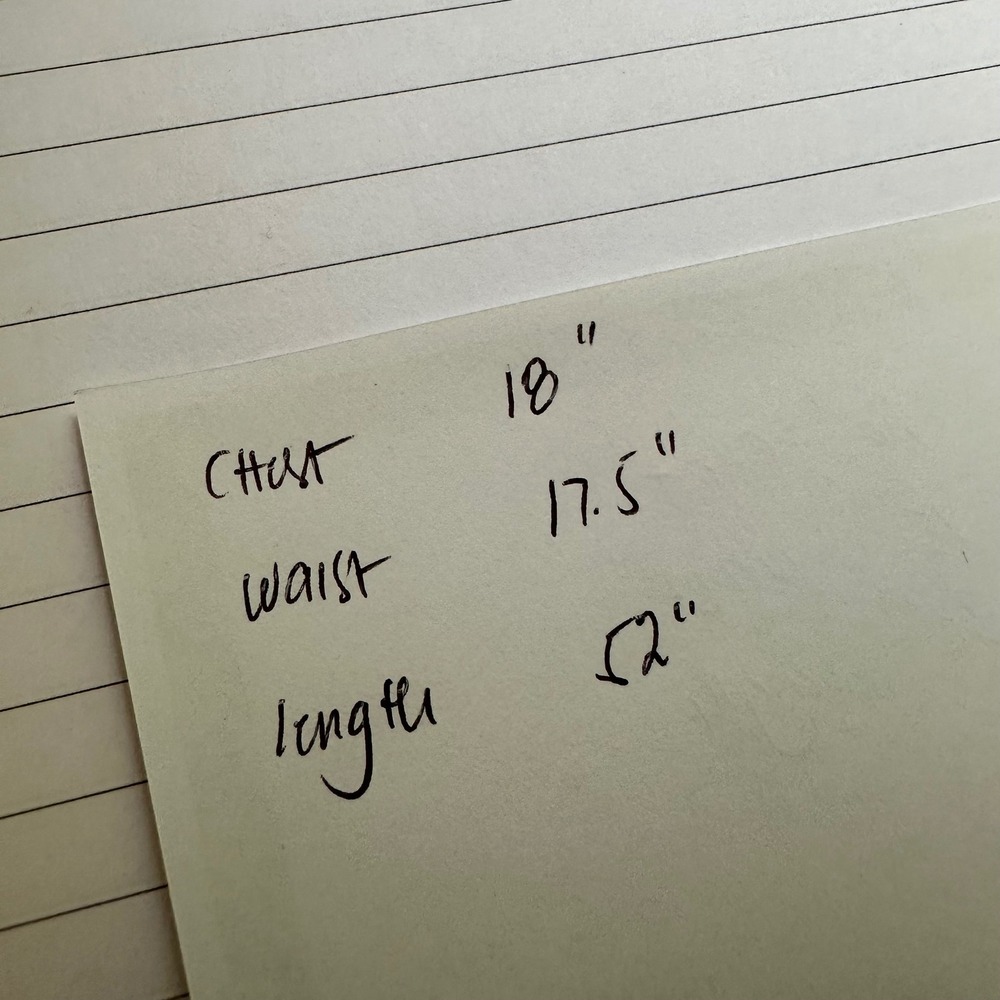 Chest 18"
Waist 17.5"
length 52"